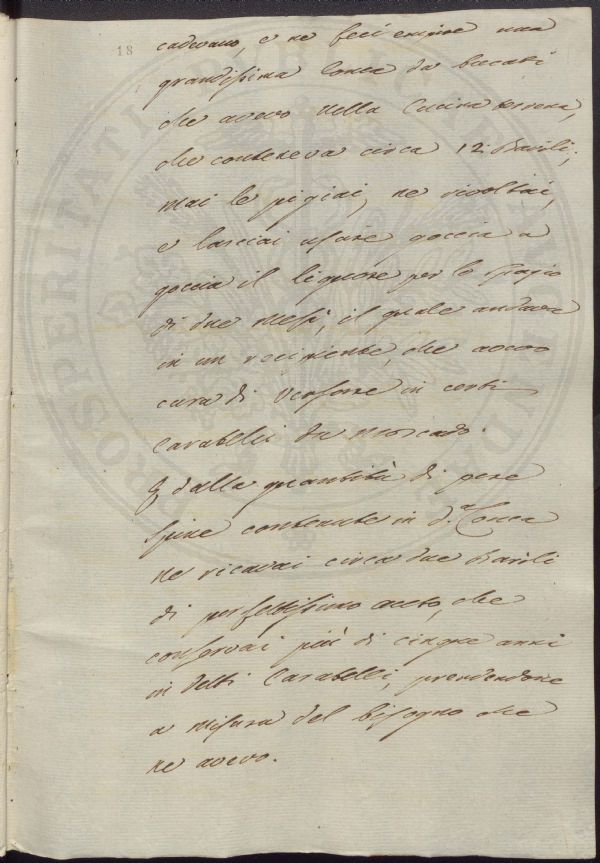 18
cadevano, e ne feci empire una
grandissima Conca da bucati
che avevo nella Cucina terrena,
che conteneva circa 12. Barili;
mai le pigiai, ne rivoltai,
e lasciai usare goccia a
goccia il liquore per lo spazio
di due mesi, il quale andava
in un recipiente, che avevo
cura di versare in certi
Caratelli da moscado.
E dalla quantità di pere
spine contenute in d.ª Conca
ne ricavai circa due Barili
di perfettissimo aceto, che
conservai più di cinque anni
in detti Caratelli, prendendone
a misura del bisogno che
ne avevo.
PROSPERITATI PUBLICAE AUGENDAE